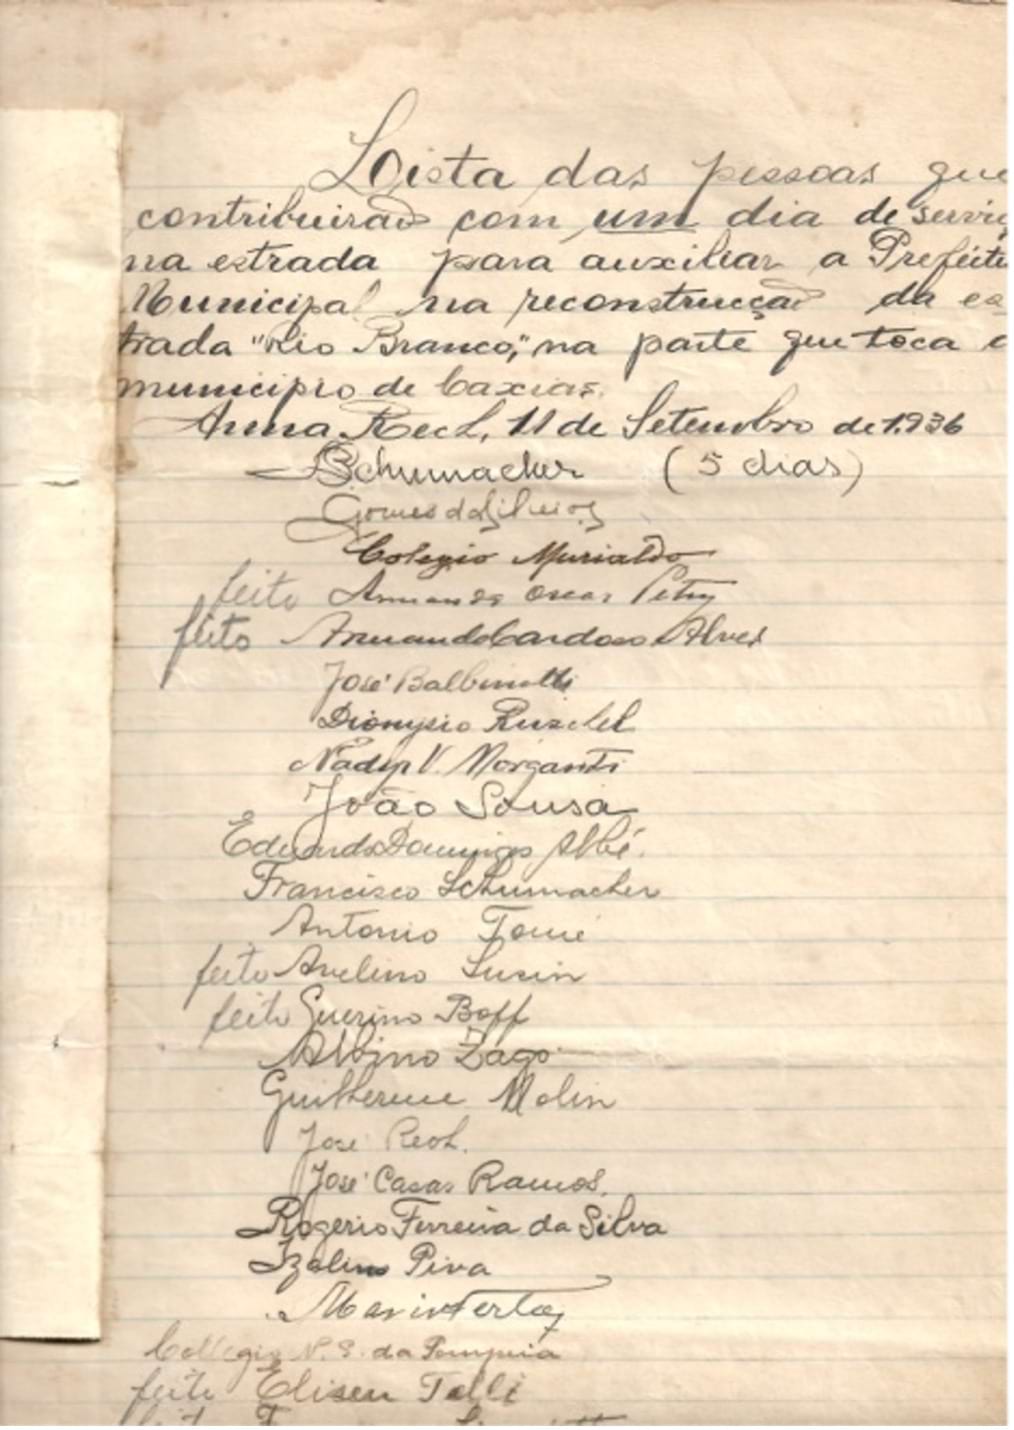 Lista das pessoas que
contribuirão com um dia de serviç
na estrada para auxiliar a Prefeitu
Municipal na reconstrucção da es
trada "Rio Branco," na parte que toca a
municipio de Caxias.
Anna Rech, 11 de Setembro de 1.936
Schumacher (5 dias)
Gomes da
Colegio Murialdo
feito Oscar Petry
feito Armando Cardoso Alves
José Balbinotti
Dionysio Ruzchel
Nadyr V. Morganti
João Sousa
Eduardo Domingos
Francisco Schumacher
Antonio Tomé
feito Avelino Susin
feito Guerino Boff
Albino Zago
Guilherme Molin
José Rech.
José Casas Ramos.
Rogerio Ferreira da Silva
Izalino Piva
Mario
Collegio N. S. da Pompeia
feito Eliseu Telli